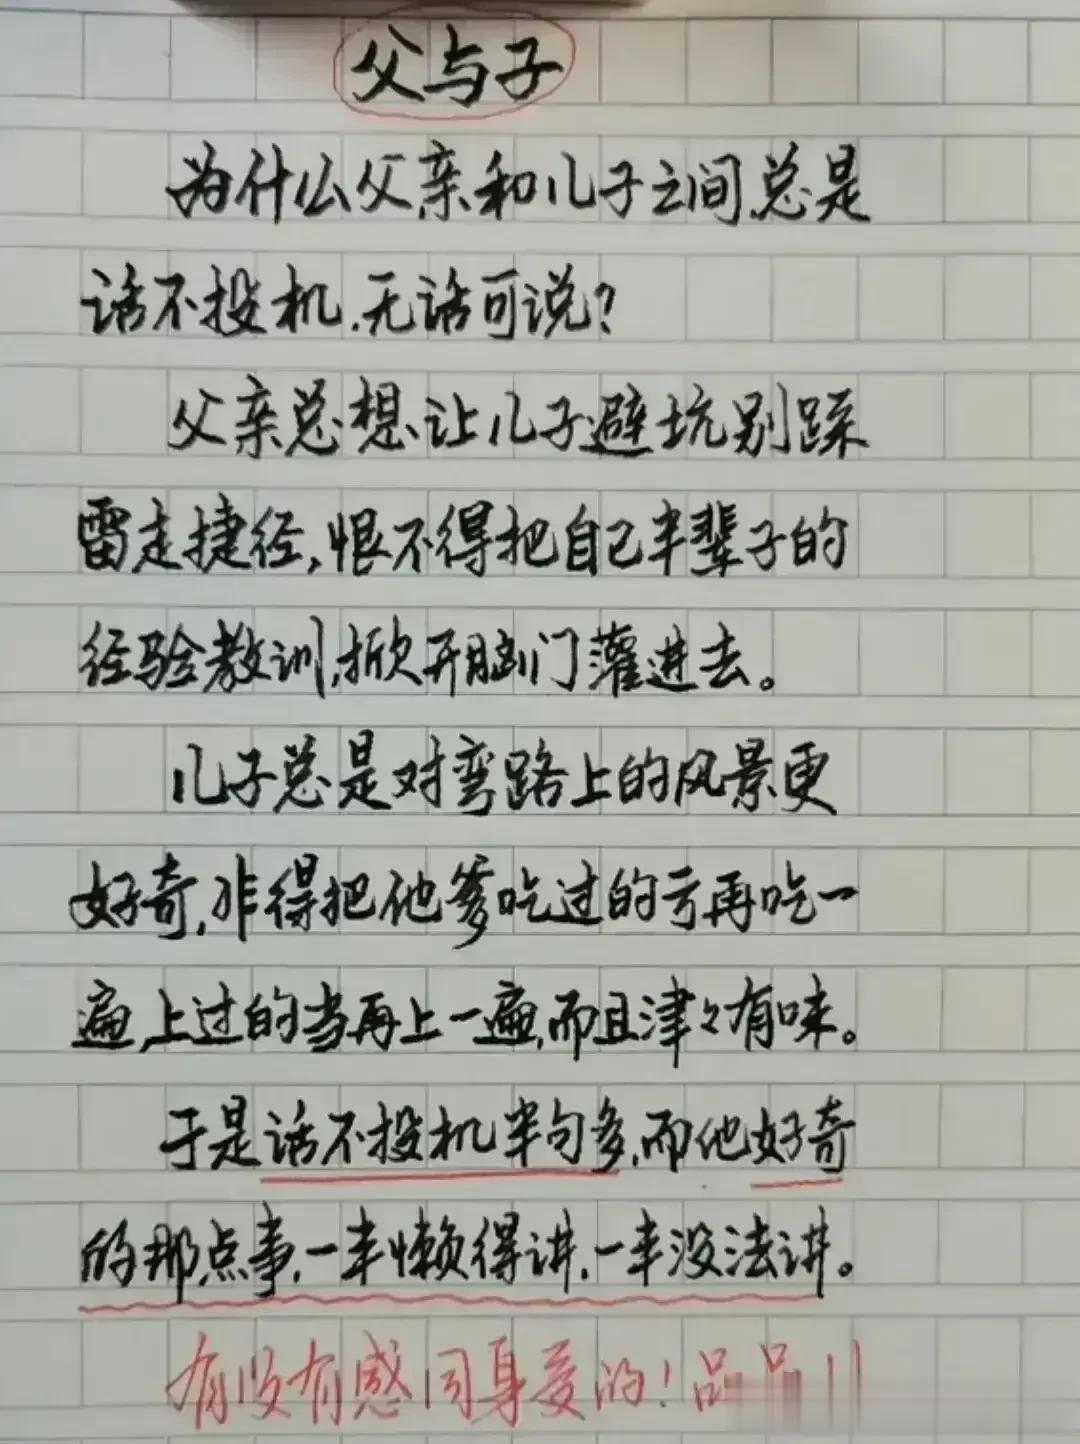 父与子
为什么父亲和儿子之间总是
话不投机.无话可说?
父亲总想让儿子避坑别踩
雷走捷径,恨不得把自己半辈子的
经验教训,掀开脑门灌进去。
儿子总是对弯路上的风景更
好奇,非得把他爹吃过的亏再吃一
遍,上过的当再上一遍,而且津々有味。
于是话不投机半句多,而他好奇
的那点事,一半懒得讲,一半没法讲。
有没有感同身受的!品品